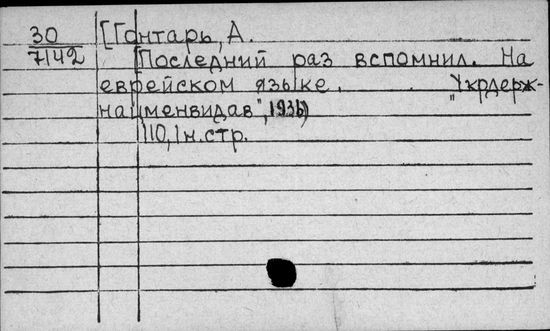 30
7142
[Гонтарь, А.
[Последний раз вспомнил. На
еврейском языке. "Укрдерж-
наименвидав",
110, 1 н. стр.